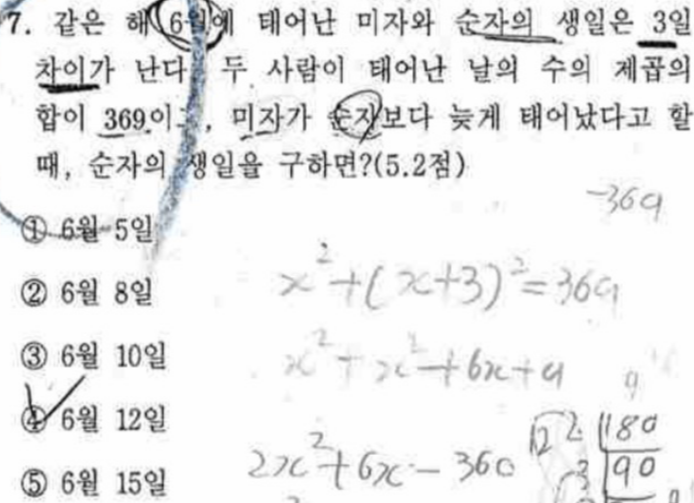 7. 같은 해 6월에 태어난 미자와 순자의 생일은 3일
차이가 난다 두 사람이 태어난 날의 수의 제곱의
합이 369이고, 미자가 순자보다 늦게 태어났다고 할
때, 순자의 생일을 구하면?(5.2점)
-369
① 6월 5일
② 6월 8일
x²+(x+3)²=369
③ 6월 10일
x²+x²+6x+9
9
④ 6월 12일
2x²+6x-360
12 2 180
3 90
⑤ 6월 15일